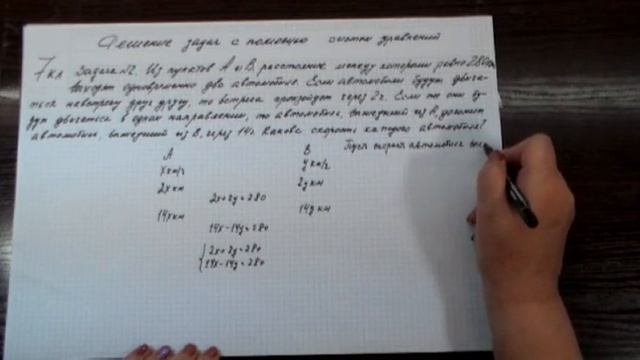 Решение задач с помощью систем уравнений
7 кл Задача №2. Из пунктов А и В, расстояние между которыми равно 280км,
выходят одновременно два автомобиля. Если автомобили будут двига-
ться навстречу друг другу, то встреча произойдет через 2ч. Если же они бу-
дут двигаться в одном направлении, то автомобиль, вышедший из А, догонит
автомобиль, вышедший из В, через 14ч. Какова скорость каждого автомобиля?
А В Пусть скорость автомобиля вы
х км/ч у км/ч
2х км 2у км
2х+2у=280
14х км 14у км
14х-14у=280
2х+2у=280
14х-14у=280